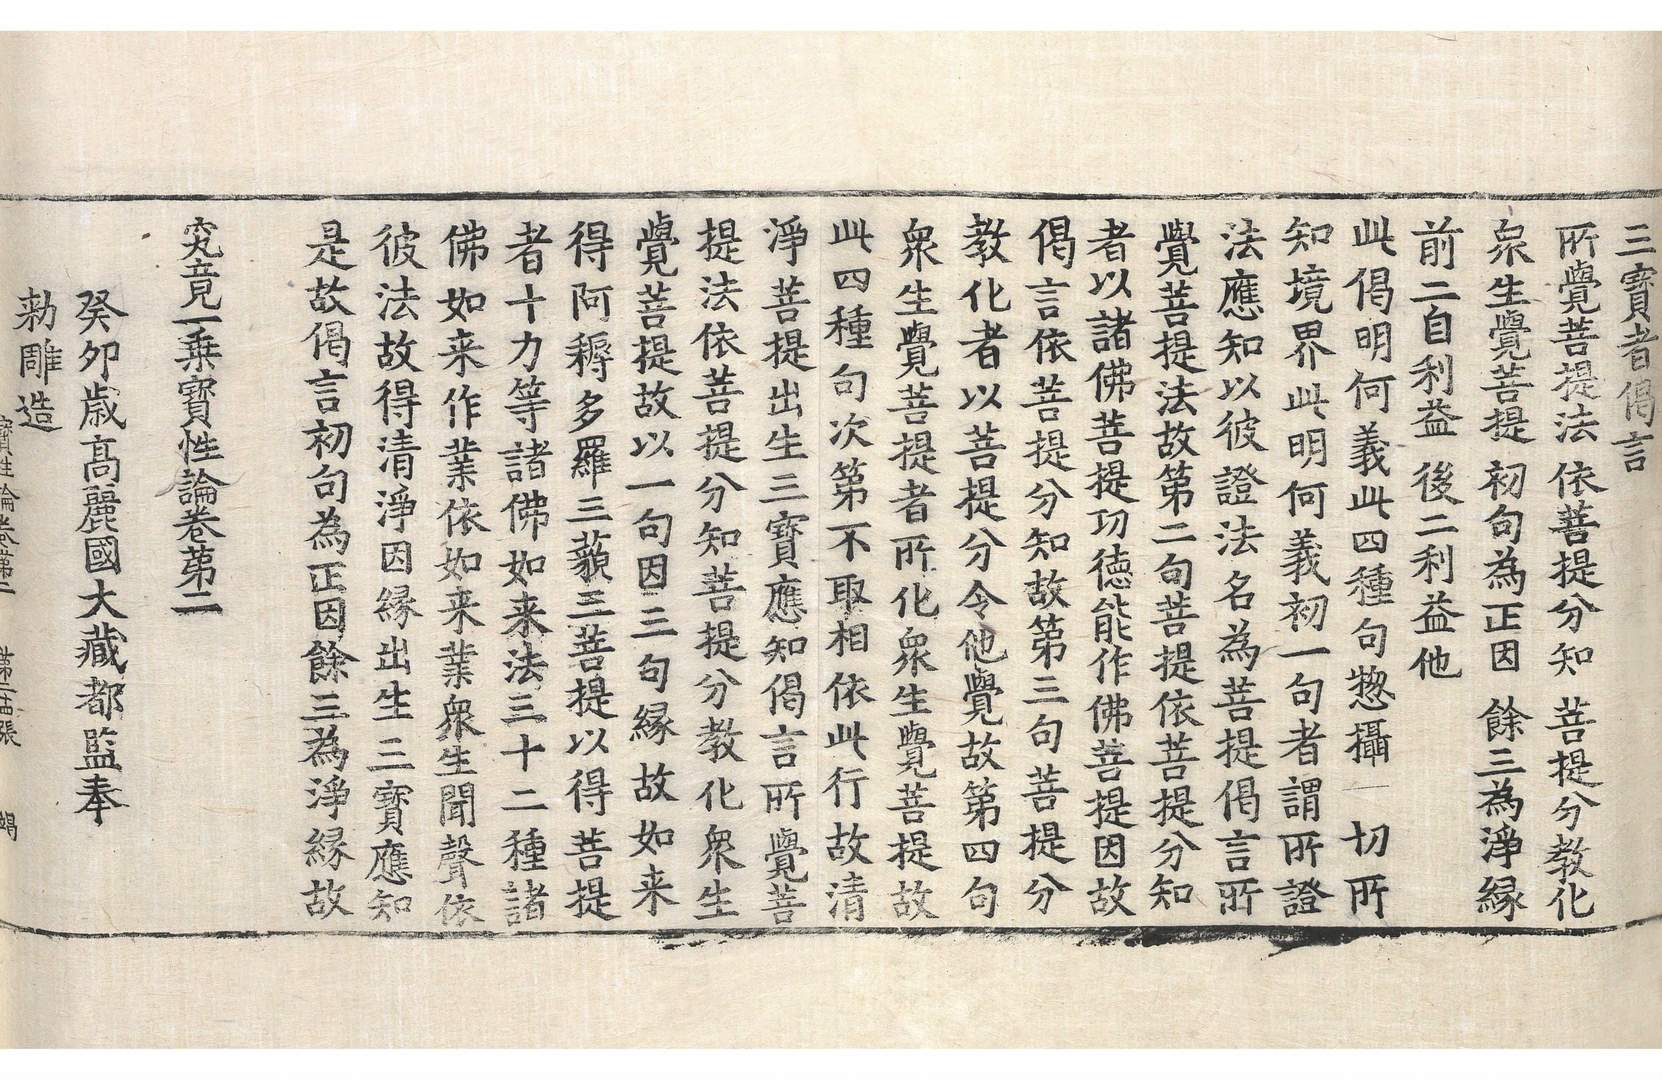 三寶者偈言
所覺菩提法 依菩提分知 菩提分教化
衆生覺菩提 初句為正因 餘三為淨緣
前二自利益 後二利益他
此偈明何義此四種句惣攝一切所
知境界此明何義初一句者謂所證
法應知以彼證法名為菩提偈言所
覺菩提法故第二句菩提依菩提分知
者以諸佛菩提功德能作佛菩提因故
偈言依菩提分知故第三句菩提分
教化者以菩提分令他覺故第四句
衆生覺菩提者所化衆生覺菩提故
此四種句次第不取相依此行故清
淨菩提出生三寶應知偈言所覺菩
提法依菩提分知菩提分教化衆生
覺菩提故以一句因三句緣故如来
得阿耨多羅三藐三菩提以得菩提
者十力等諸佛如来法三十二種諸
佛如来作業依如来業衆生聞聲依
彼法故得清淨因緣出生三寶應知
是故偈言初句為正因餘三為淨緣故
究竟一乗寶性論卷第二
癸卯歲高麗國大藏都監奉
勑雕造
寶性論卷第二 第二十四張 竭